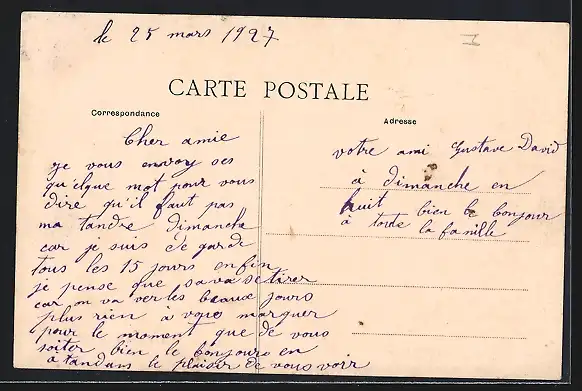 le 25 mars 1927
CARTE POSTALE
Correspondance
Adresse
Cher amie
je vous envoy ses
qu'elque mot pour vous
dire qu'il faut pas
ma tandre dimanche
car je suis de garde
tous les 15 jours enfin
je pense que sava setirer
car on va vers les beaux jours
plus rien à vous marquer
pour le moment que de vous
soiter bien le bonjours en
atandans le plaisir de vous voir
votre ami Gustave David
à dimanche en
huit bien le bonjour
à toute la famille